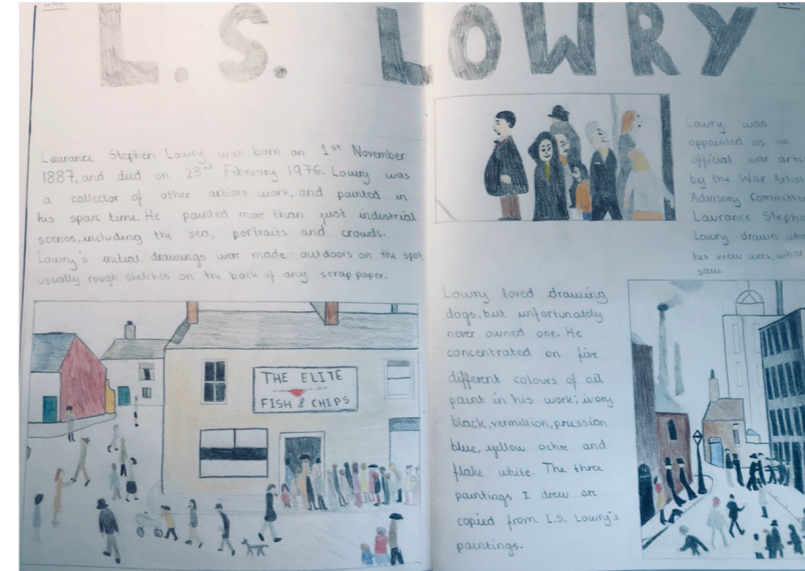 L.S. LOWRY
Laurance Stephen Lowry was born on 1st November
1887, and died on 23rd February 1976. Lowry was
a collector of other artists work, and painted in
his spare time. He painted more than just industrial
scenes, including the sea, portraits and crowds.
Lowry's initial drawings were made outdoors on the spot,
usually rough sketches on the back of any scrap paper.
THE ELITE
FISH & CHIPS
Lowry was
appointed as an
official war
by the War Artist
Advisory
Laurance
Lowry drawn
his view was, what
saw.
Lowry loved drawing
dogs, but unfortunately
never owned one. He
concentrated on five
different colours of oil
paint in his work; ivory
black, vermillion, prussion
blue, yellow ochre and
flake white. The three
paintings I drew are
copied from L.S. Lowry's
paintings.